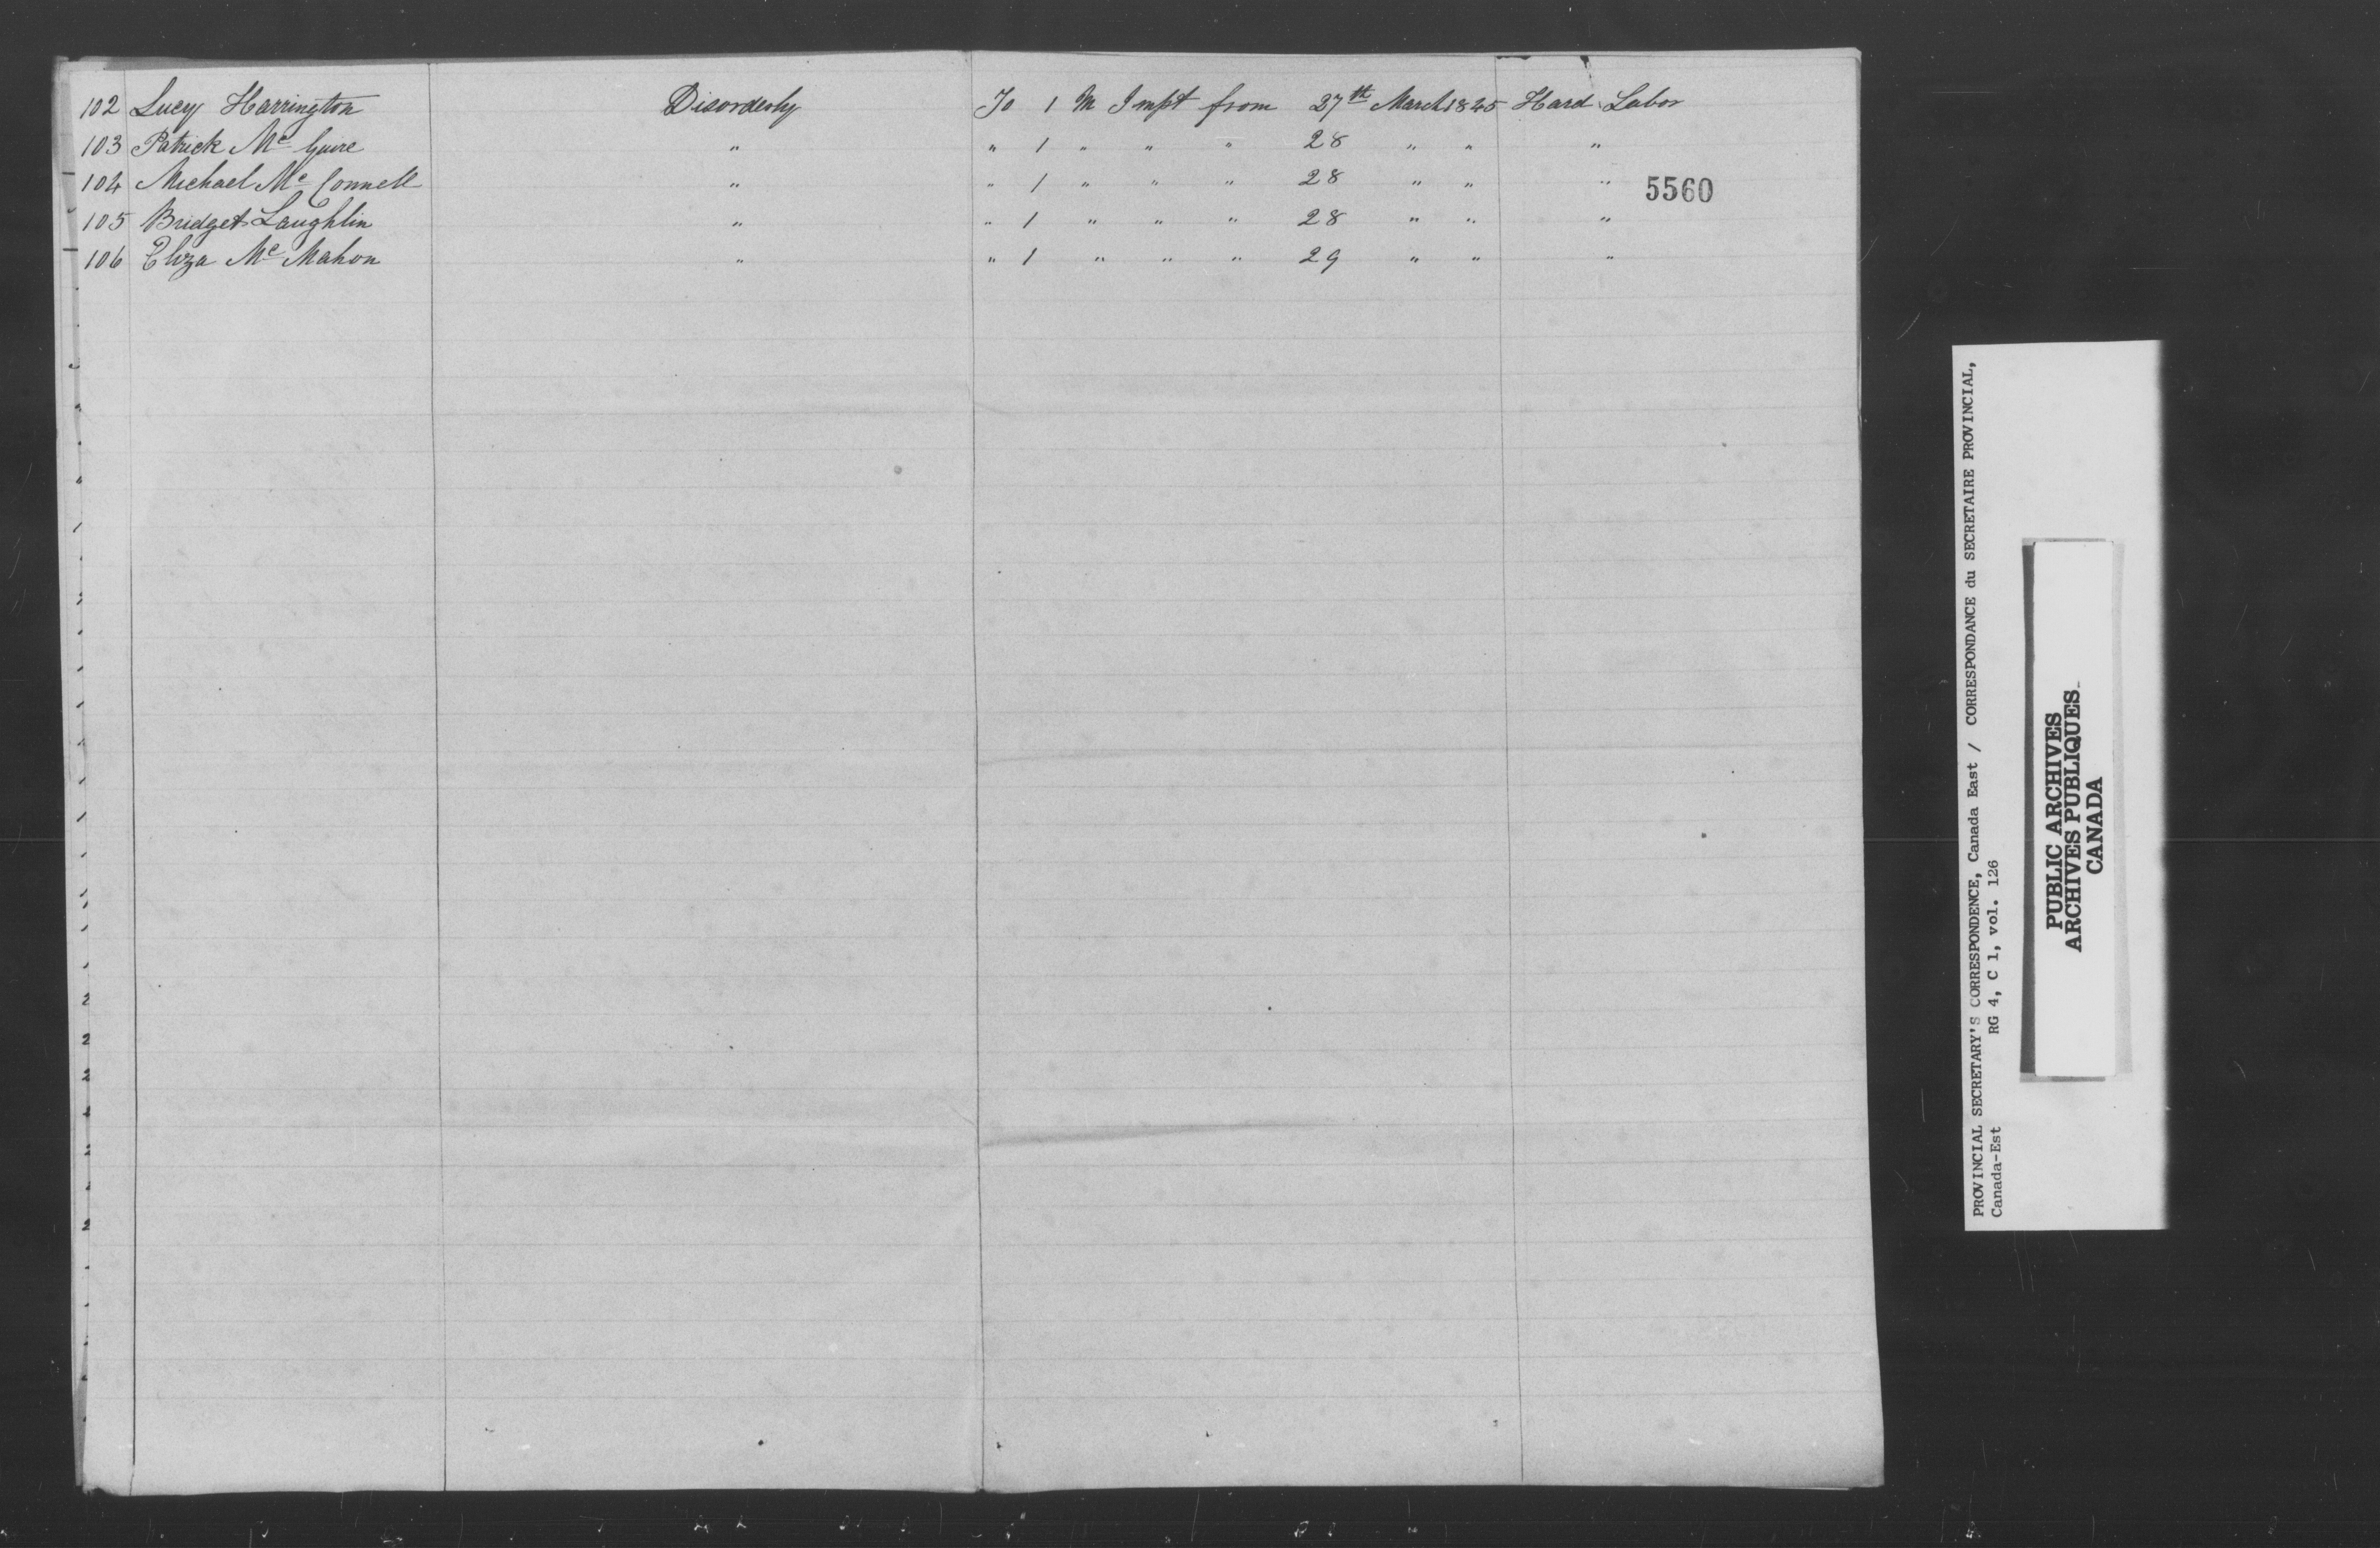 102 Lucy Harrington Disorderly To 1 M Impt from 27th March 1845 Hard Labor
103 Patrick Mc Guire " " 1 " " " 28 " " "
104 Michael Mc Connell " " 1 " " " 28 " " "
5560
105 Bridget Laughlin " " 1 " " " 28 " " "
106 Eliza Mc Mahon " " 1 " " " 29 " " "
PROVINCIAL SECRETARY'S CORRESPONDENCE, Canada East / CORRESPONDANCE du SECRETAIRE PROVINCIAL,
Canada-Est RG 4, C 1, vol. 126
PUBLIC ARCHIVES
ARCHIVES PUBLIQUES
CANADA